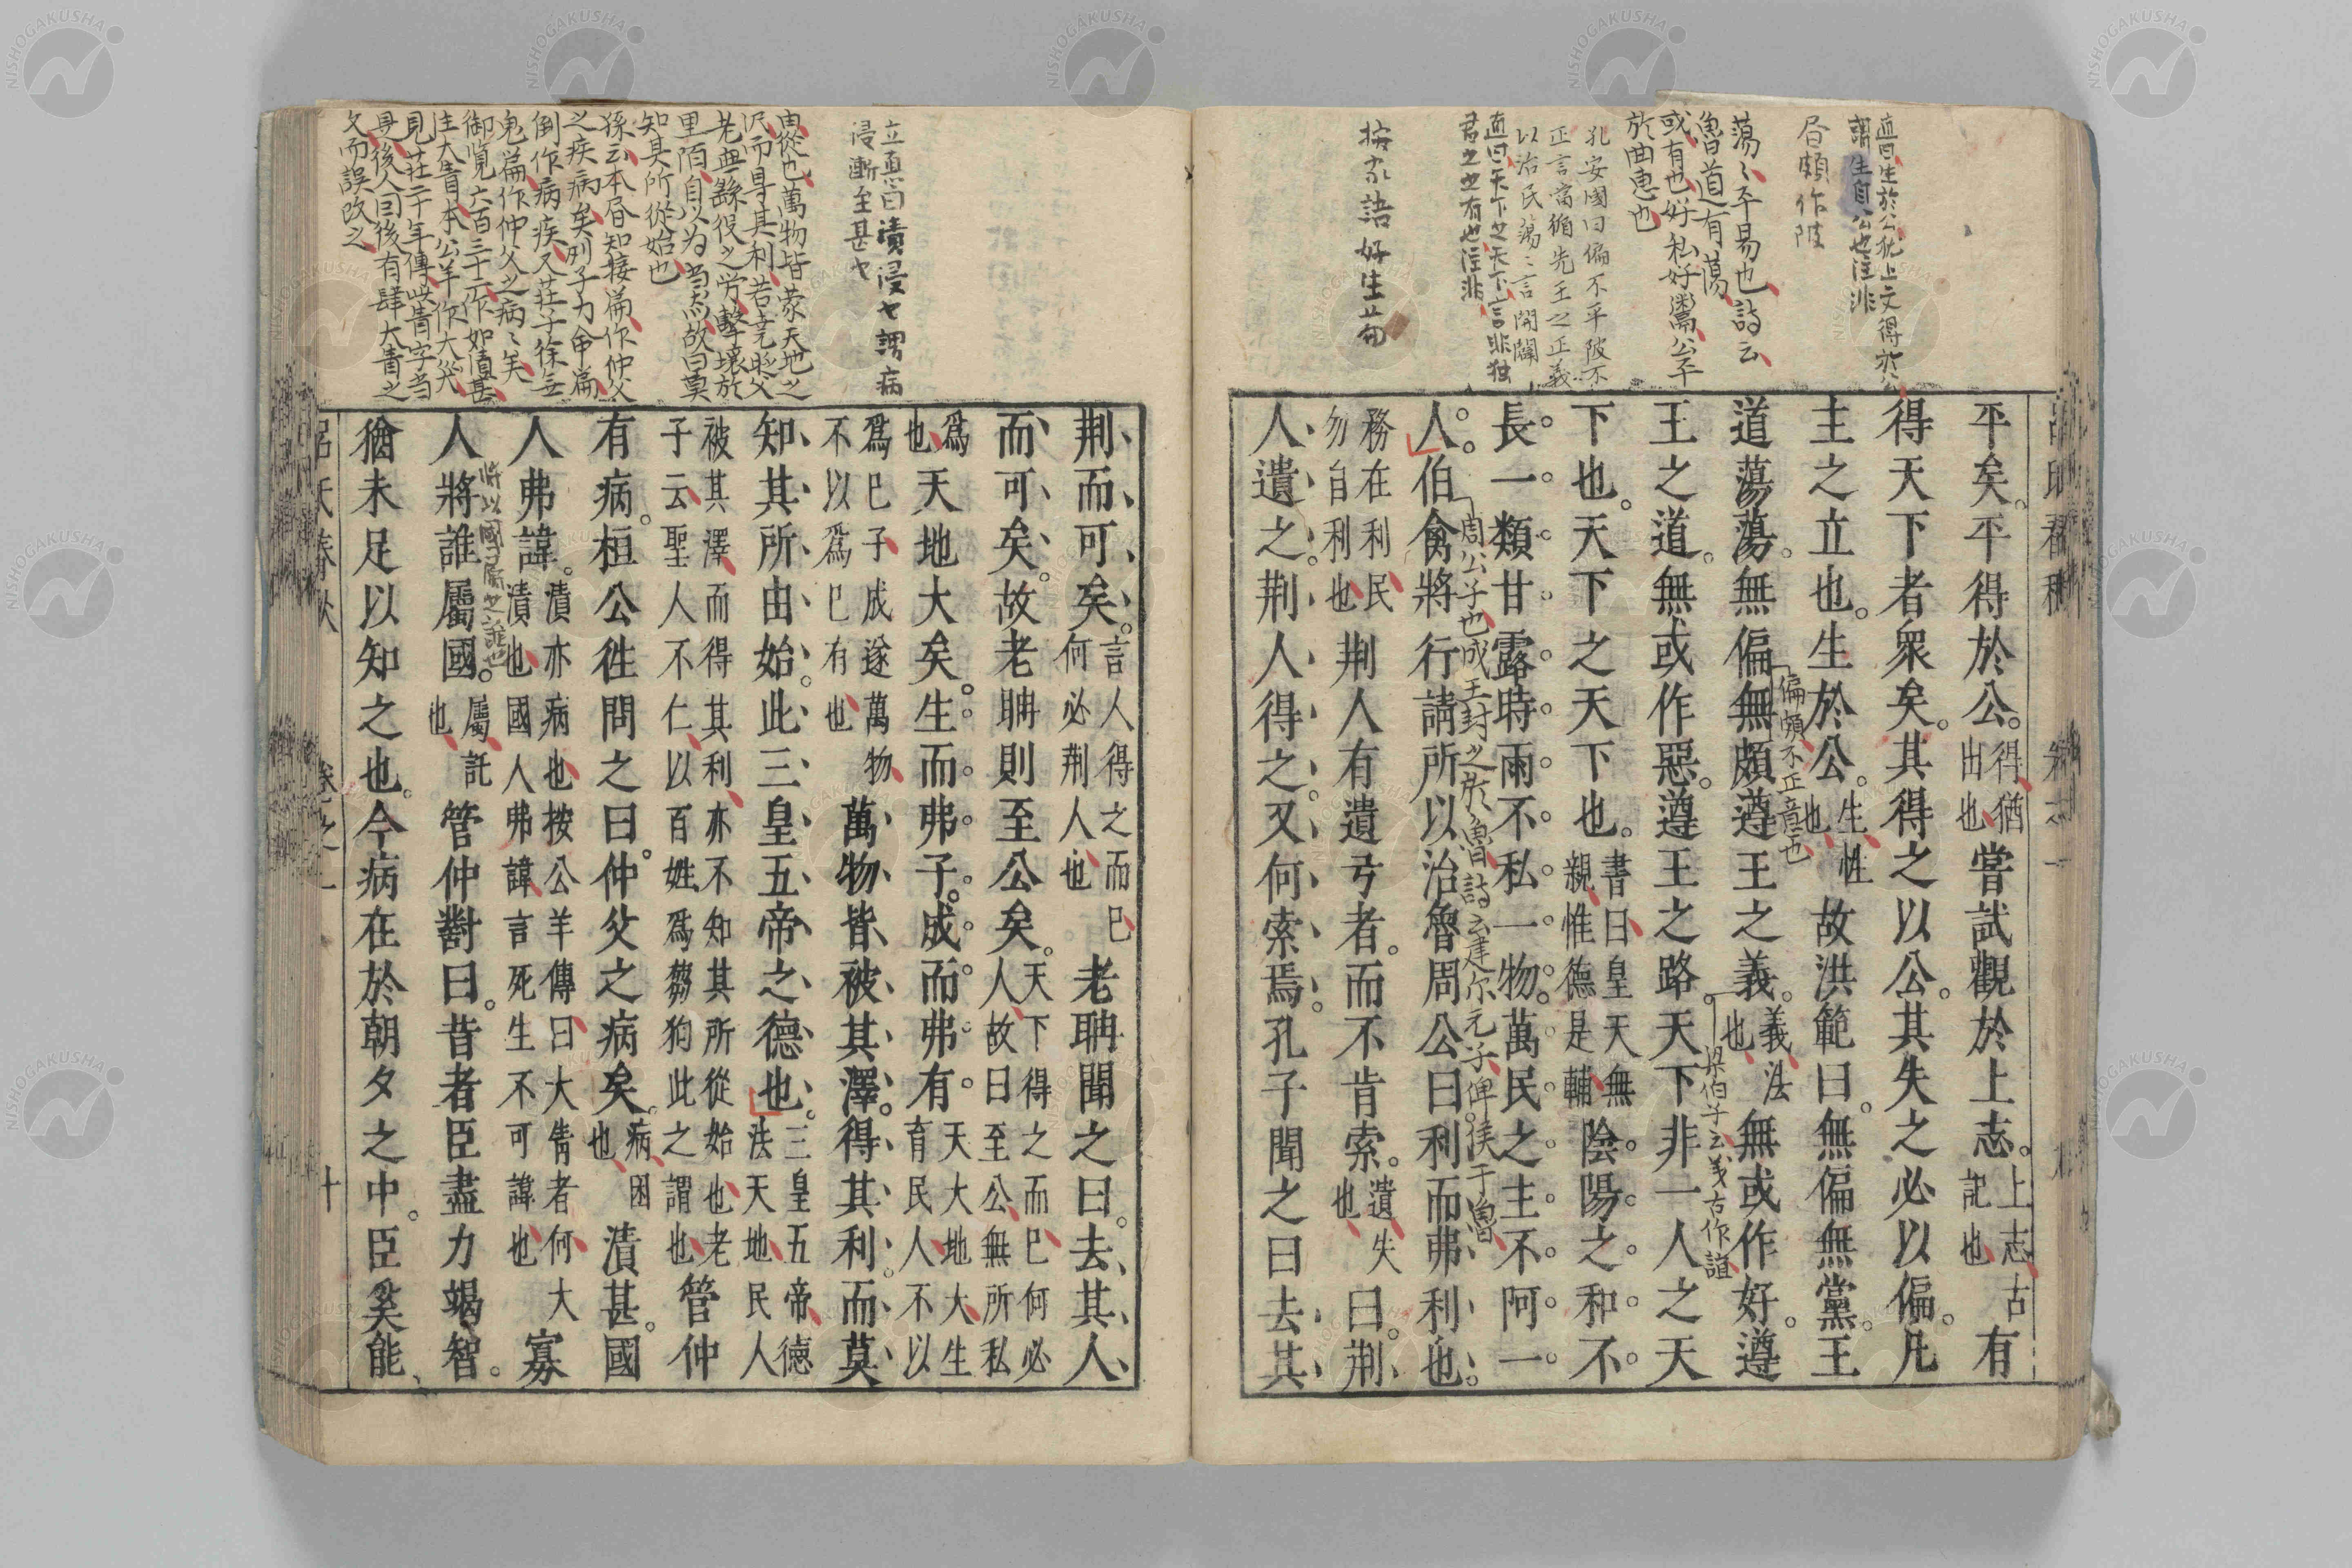 平矣。平得於公。得猶出也嘗試觀於上志。上志古記也有
得天下者衆矣。其得之以公。其失之必以偏。凡
主之立也。生於公。生性也故洪範曰。無偏無黨。王
道蕩蕩。無偏無頗。遵王之義。義法也無或作好。遵
王之道。無或作惡。遵王之路。天下非一人之天
下也。天下之天下也。書曰皇天無親惟德是輔陰陽之和。不
長一類。甘露時雨。不私一物。萬民之主。不阿一
人。伯禽將行。請所以治魯。周公曰。利而弗利也。
務在利民勿自利也荆人有遺弓者。而不肯索。遺失也曰。荆
人遺之。荆人得之。又何索焉。孔子聞之曰。去其
荆而可矣。言人得之而已何必荆人也老聃聞之曰。去其人
而可矣。故老聃則至公矣。天下得之而已何必人故曰至公無所私
爲也天地大矣。生而弗子。成而弗有。天大地大生育民人不以
爲已子成遂萬物不以爲已有也萬物皆被其澤。得其利。而莫
知其所由始。此三皇五帝之德也。三皇五帝德法天地民人
被其澤而得其利亦不知其所從始也老子云聖人不仁以百姓爲芻狗此之謂也管仲
有病。桓公徃問之曰。仲父之病矣。病困也漬甚。國
人弗諱。漬亦病也按公羊傳曰大眚者何大漬也國人弗諱言死生不可諱也寡
人將誰屬國。屬託也管仲對曰。昔者臣盡力竭智。
猶未足以知之也。今病在於朝夕之中。臣奚能
直曰生於公犹上文得於公
謂生自公也注非
昏頗作陂
蕩〻平易也詩云
魯道有蕩
或有也好私好鬻公平
於曲惠也
孔安國曰偏不平陂不
正言當循先王之正義
以治民蕩〻言開闢
直曰天下之天下言非独
君之之有也注非
按家語好生篇
立直曰漬浸也謂病
浸漸至甚也
由從也萬物皆蒙天地之
沢而得其利若堯時父
老無繇役之労擊壤於
里陌自以为當然故曰莫
知其所從始也
孫云本昏知接篇作仲父
之疾病矣列子力命篇
倒作病疾又莊子徐无
鬼篇作仲父之病〻矣
御覧六百三十二作如漬甚
注大眚本公羊作大災
見莊二十年傳此眚字当
是後人因後有肆大眚之
文而誤改之
偏頗不正意也
梁伯子云義古作誼
周公子也成王封之於魯詩云建尔元子俾侯于魯
將以國事屬之誰也
十